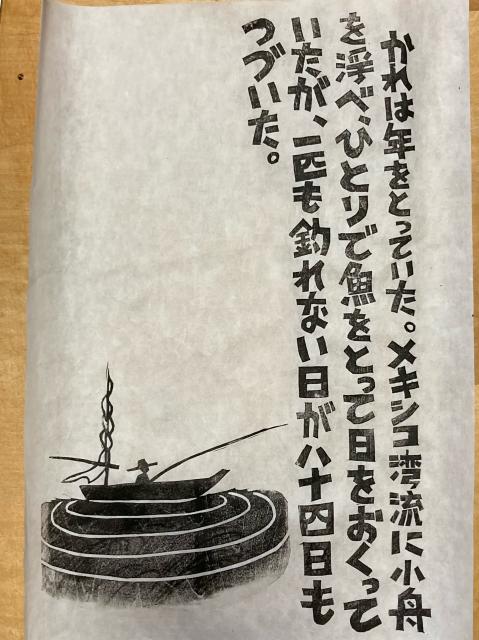 かれは年をとっていた。メキシコ湾流に小舟
を浮べ、ひとりで魚をとって日をおくって
いたが、一匹も釣れない日が八十四日も
つづいた。